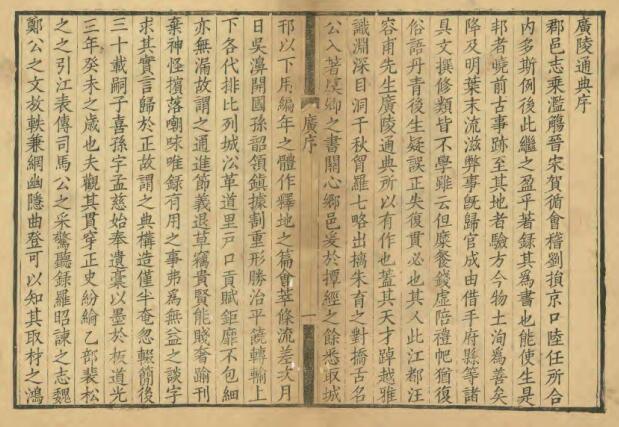 廣陵通典序
郡邑志乘濫觴晉宋賀循會稽劉損京口陸任所合
内多斯例後此繼之盈乎著錄其為書也能使生是
邦者曉前古事跡至其地者驗方今物土洵為善矣
降及明葉末流滋弊事旣歸官成由借手府縣等諸
具文撰修類皆不學雖云但糜餐錢虛陪禮帊猶復
俗語丹青後生疑誤正失復貫必也其人此江都汪
容甫先生廣陵通典所以有作也蓋其天才踔越雅
識淵深目洞千秋胷羅七略出摛朱育之對撟舌名
公入著吳卿之書關心鄉邑爰於撢經之餘悉取城
廣序
一
邗以下用編年之體作釋地之篇會萃條流差次月
日吳濞開國孫韶領鎮據割重形勝治平饒轉輸上
下各代排比列城㳂革道里戸口貢賦鉅靡不包細
亦無漏故謂之通進節義退草竊貴賢能賤奢踰刊
棄神怪擯落嘲咏唯錄有用之事弗為無益之談字
求其實言歸於正故謂之典構造僅半奄忽輟簡後
三十載嗣子喜孫字孟慈始奉遺稾以墨於板道光
三年癸未之歲也夫觀其貫穿正史紛綸乙部裴松
之之引江表傳司馬公之采驚聽錄羅昭諫之志魏
鄭公之文放軼兼網幽隱曲登可以知其取材之鴻